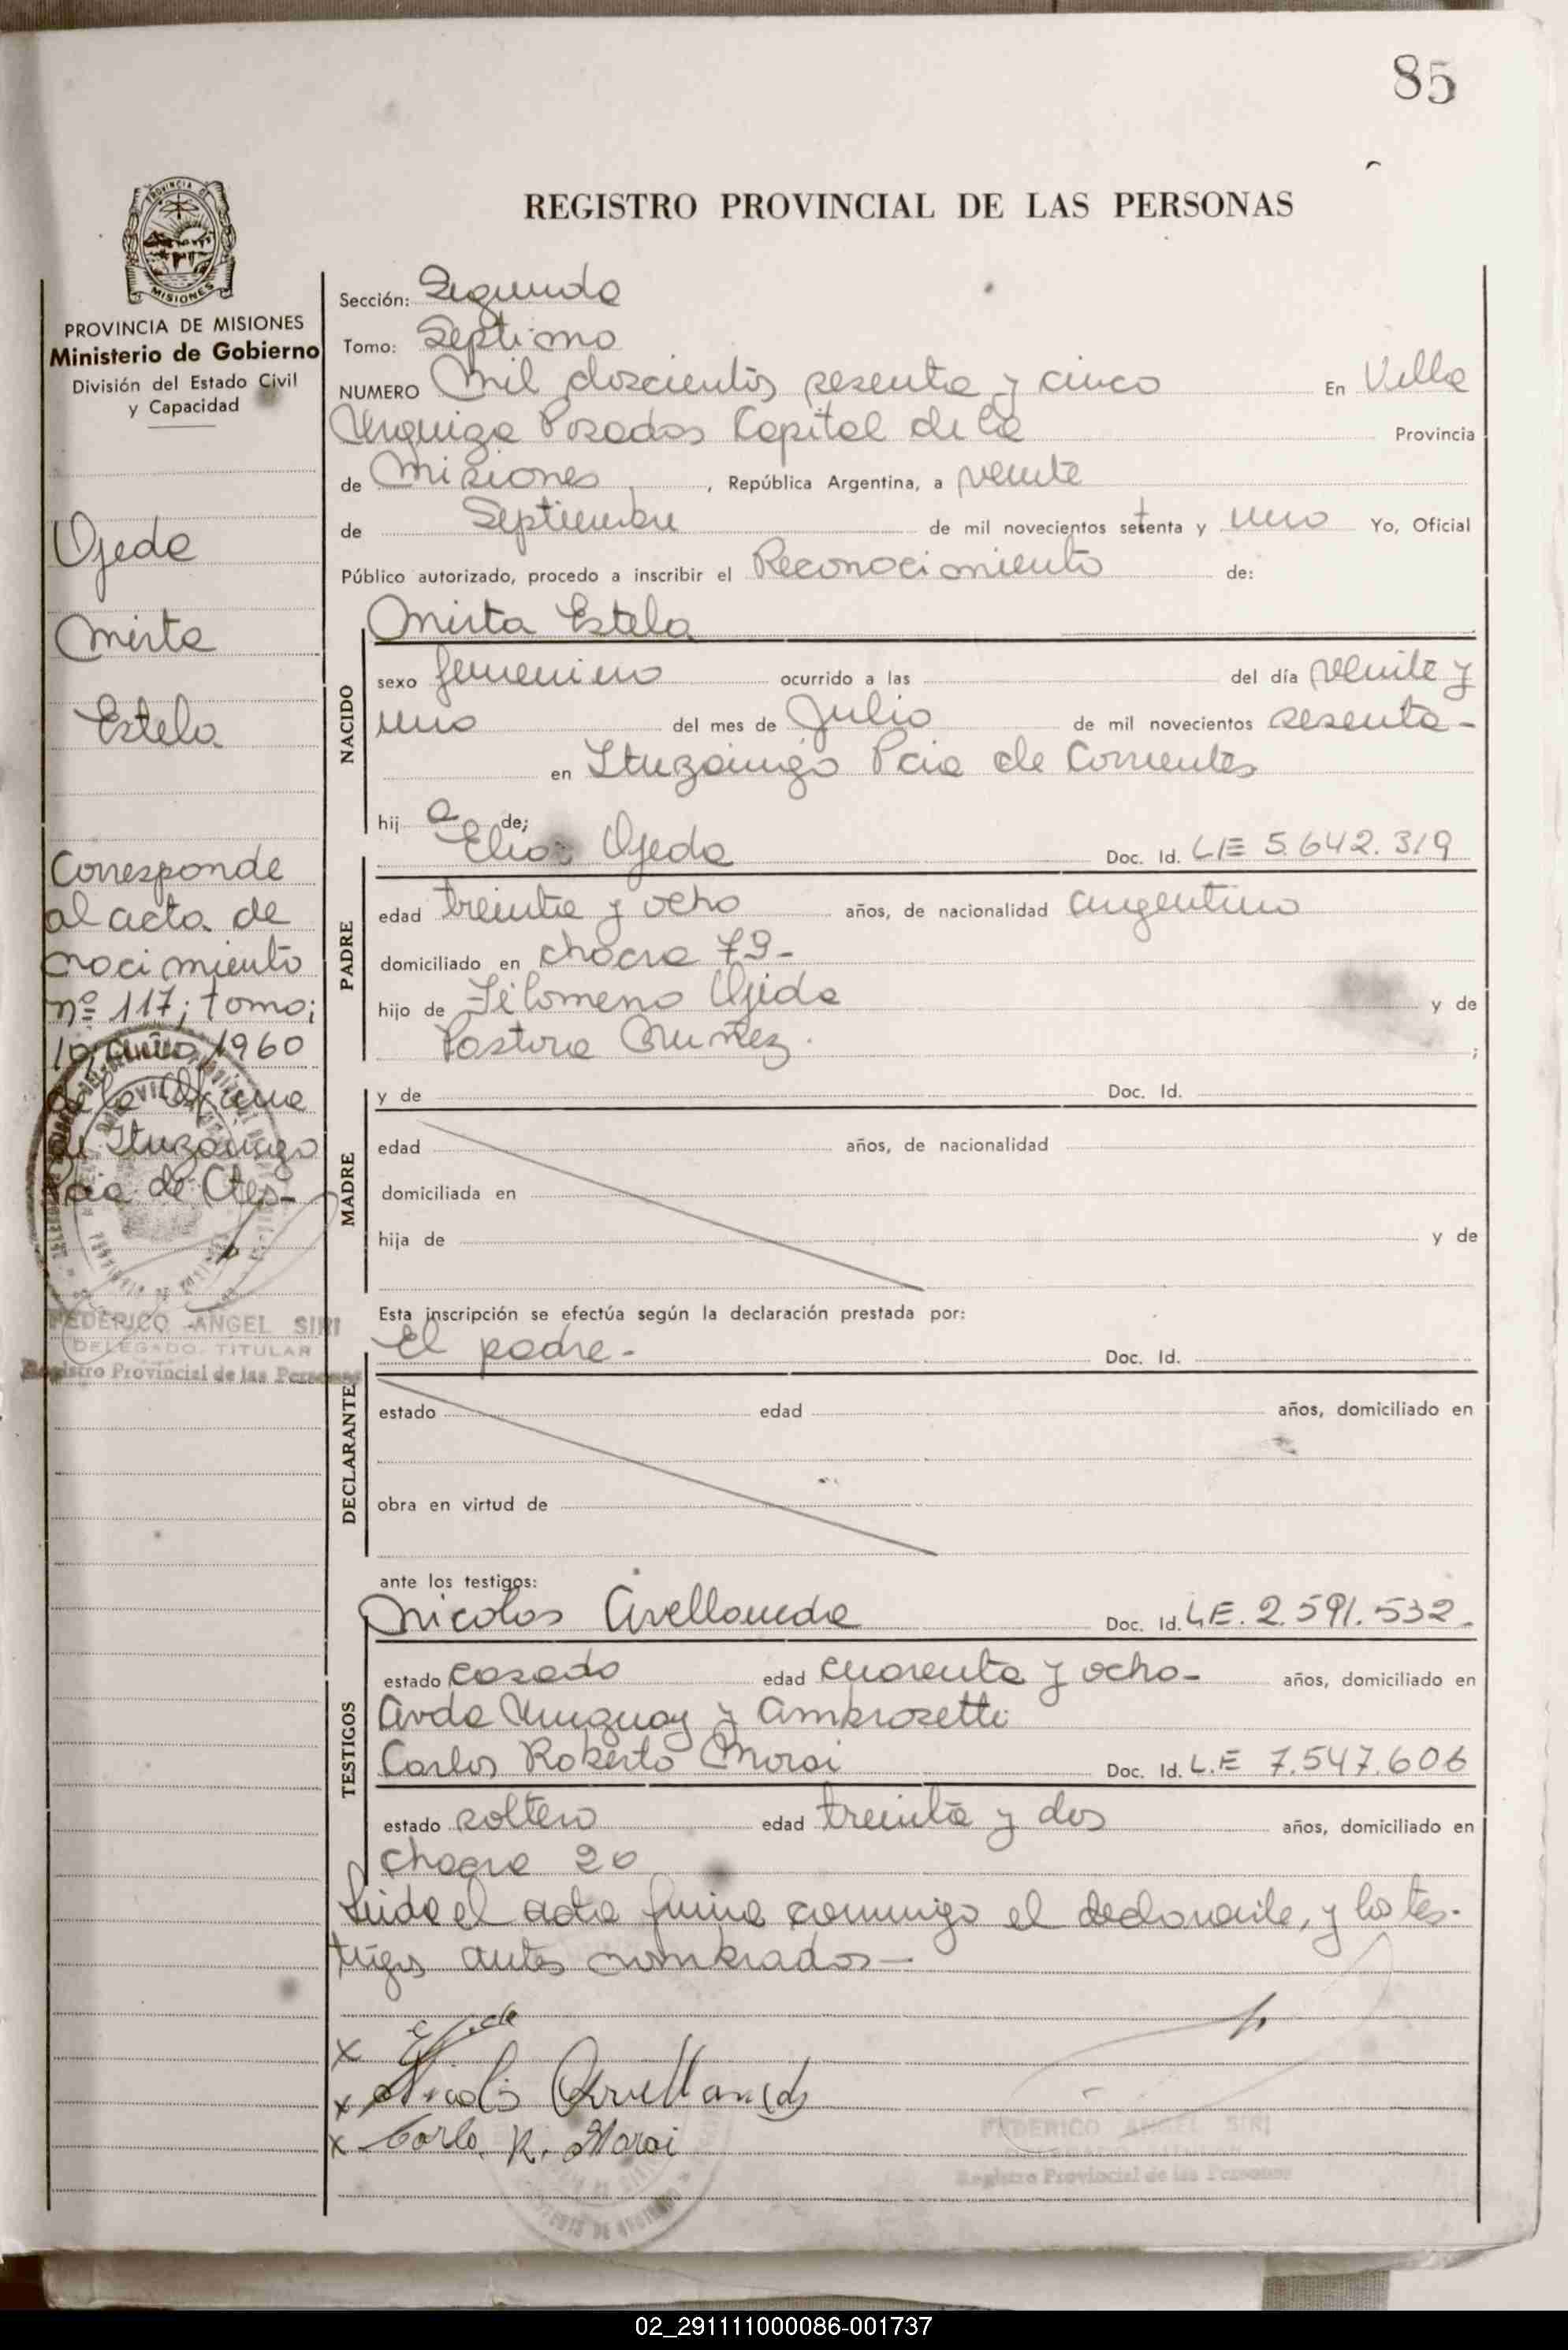 85
REGISTRO PROVINCIAL DE LAS PERSONAS
PROVINCIA DE MISIONES
Ministerio de Gobierno
División del Estado Civil
y Capacidad
Ojeda
Mirta
Estela
Corresponde
al acta de
nacimiento
nº 117; tomo;
1º, año, 1960
de la Oficina
de Ituzaingo
Pcia de Ctes-
FEDERICO ANGEL SIRI
DELEGADO TITULAR
Registro Provincial de las Personas
Sección: Segunda
Tomo: Septimo
NUMERO Mil doscientos sesenta y cinco En Villa
Urquiza Posadas Capital de la Provincia
de Misiones, República Argentina, a veinte
de Septiembre de mil novecientos setenta y uno Yo, Oficial
Público autorizado, procedo a inscribir el Reconocimiento de:
Mirta Estela
NACIDO
sexo femenino ocurrido a las del día veinte y
uno del mes de Julio de mil novecientos sesenta-
en Ituzaingo Pcia de Corrientes
hij a de;
Ojeda Doc. Id. LE 5.642.319
PADRE
edad treinta y ocho años, de nacionalidad argentino
domiciliado en chacra 79-
hijo de Filomeno Ojeda y de
Pastora Nuñez.;
MADRE
y de Doc. Id.
edad años, de nacionalidad
domiciliada en
hija de y de
Esta inscripción se efectúa según la declaración prestada por:
El padre- Doc. Id.
DECLARANTE
estado edad años, domiciliado en
obra en virtud de
ante los testigos:
Nicolas Avellaneda Doc. Id. LE. 2.591.532.
TESTIGOS
estado casado edad cuarenta y ocho- años, domiciliado en
Avda Uruguay y Ambrosetti
Carlos Roberto Morai Doc. Id. L.E 7.547.606
estado soltero edad treinta y dos años, domiciliado en
chacra 20
Leida el acta firma conmigo el declarante, y los tes-
tigos antes nombrados-
x
x Nicolas Avellaneda
x Carlos R. Morai
FEDERICO ANGEL SIRI
DELEGADO TITULAR
Registro Provincial de las Personas
02_291111000086-001737